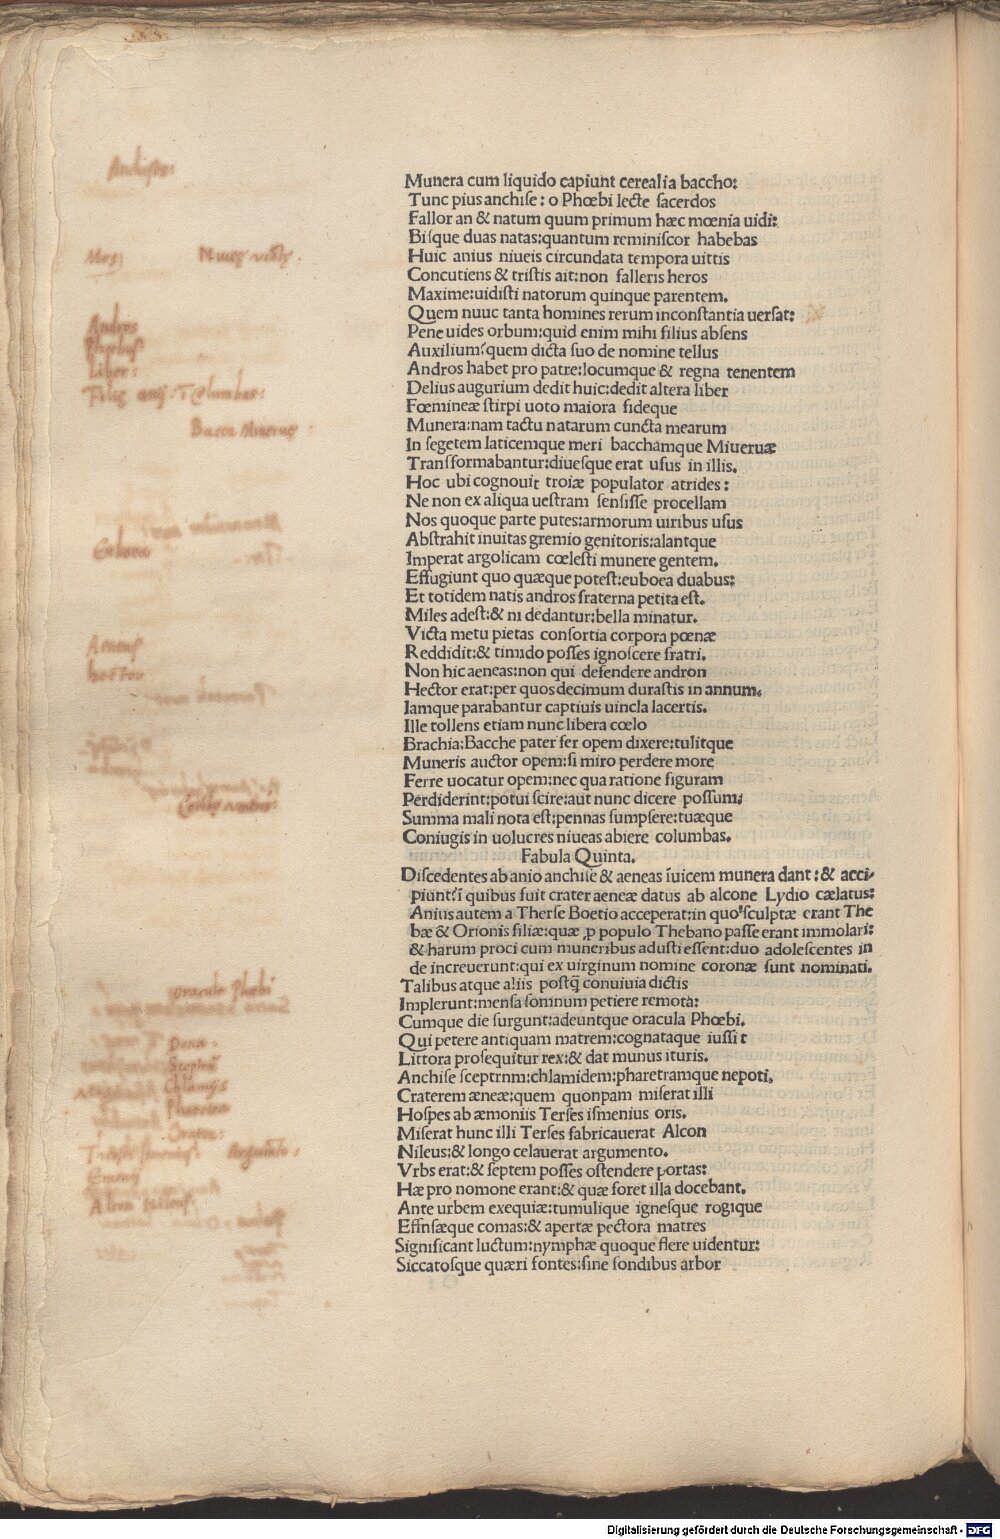 Anchises:
Munera cum liquido capiunt cerealia baccho:
Tunc pius anchise: o Phœbi lecte sacerdos
Fallor an & natum quum primum hæc mœnia uidi:
Bisque duas natas:quantum reminiscor habebas
Huic anius niueis circundata tempora uittis
Concutiens & tristis ait:non falleris heros
Maxime:uidisti natorum quinque parentem.
Quem nuuc tanta homines rerum inconstantia uersat:
Pene uides orbum:quid enim mihi filius absens
Auxilium?quem dicta suo de nomine tellus
Andros habet pro patre:locumque & regna tenentem
Delius augurium dedit huic:dedit altera liber
Fœmineæ stirpi uoto maiora fideque
Munera:nam tactu natarum cuncta mearum
In segetem laticemque meri bacchamque Miueruæ
Transformabantur:diuesque erat usus in illis.
Hoc ubi cognouit troiæ populator atrides:
Ne non ex aliqua uestram sensisse procellam
Nos quoque parte putes:armorum uiribus usus
Abstrahit inuitas gremio genitoris:alantque
Imperat argolicam cœlesti munere gentem.
Effugiunt quo quæque potest:euboea duabus:
Et totidem natis andros fraterna petita est.
Miles adest:& ni dedantur:bella minatur.
Victa metu pietas consortia corpora pœnæ
Reddidit:& timido posses ignoscere fratri.
Non hic aeneas:non qui defendere andron
Hector erat:per quos decimum durastis in annum.
Iamque parabantur captiuis uincla lacertis.
Ille tollens etiam nunc libera cœlo
Brachia:Bacche pater fer opem dixere:tulitque
Muneris auctor opem:si miro perdere more
Ferre uocatur opem:nec qua ratione figuram
Perdiderint:potui scire:aut nunc dicere possum:
Summa mali nota est:pennas sumpsere:tuæque
Coniugis in uolucres niueas abiere columbas.
Fabula Quinta.
Discedentes ab anio anchise & aeneas īuicem munera dant:& acci-
piunt:ī quibus fuit crater aeneæ datus ab alcone Lydio cælatus:
Anius autem a Therse Boetio acceperat:in quo sculptæ erant The
bæ & Orionis filiæ:quæ ꝓ populo Thebano passe erant immolari:
& harum proci cum muneribus adusti essent:duo adolescentes in
de increuerunt:qui ex uirginum nomine coronæ sunt nominati.
Talibus atque aliis postq̄ conuiuia dictis
Implerunt:mensa somnum petiere remota:
Cumque die surgunt:adeuntque oracula Phœbi.
Qui petere antiquam matrem:cognataque iussit
Littora prosequitur rex:& dat munus ituris.
Anchise sceptrnm:chlamidem:pharetramque nepoti.
Craterem æneæ:quem quonpam miserat illi
Hospes ab æmoniis Terses ismenius oris.
Miserat hunc illi Terses fabricauerat Alcon
Nileus:& longo celauerat argumento.
Vrbs erat:& septem posses ostendere portas:
Hæ pro nomone erant:& quæ foret illa docebant.
Ante urbem exequiæ:tumulique ignesque rogique
Effnsæque comas:& apertæ pectora matres
Significant luctum:nymphæ quoque flere uidentur:
Siccatosque quæri fontes:sine fondibus arbor
Andros
Phœbus
Liber:
Bacca Mineruę:
Euboea
Aeneas
hector
oracula Phœbi
Dona:
Sceptrū
Chlamys
Pharetra
Crater:
Argumēto:
Digitalisierung gefördert durch die Deutsche Forschungsgemeinschaft - DFG